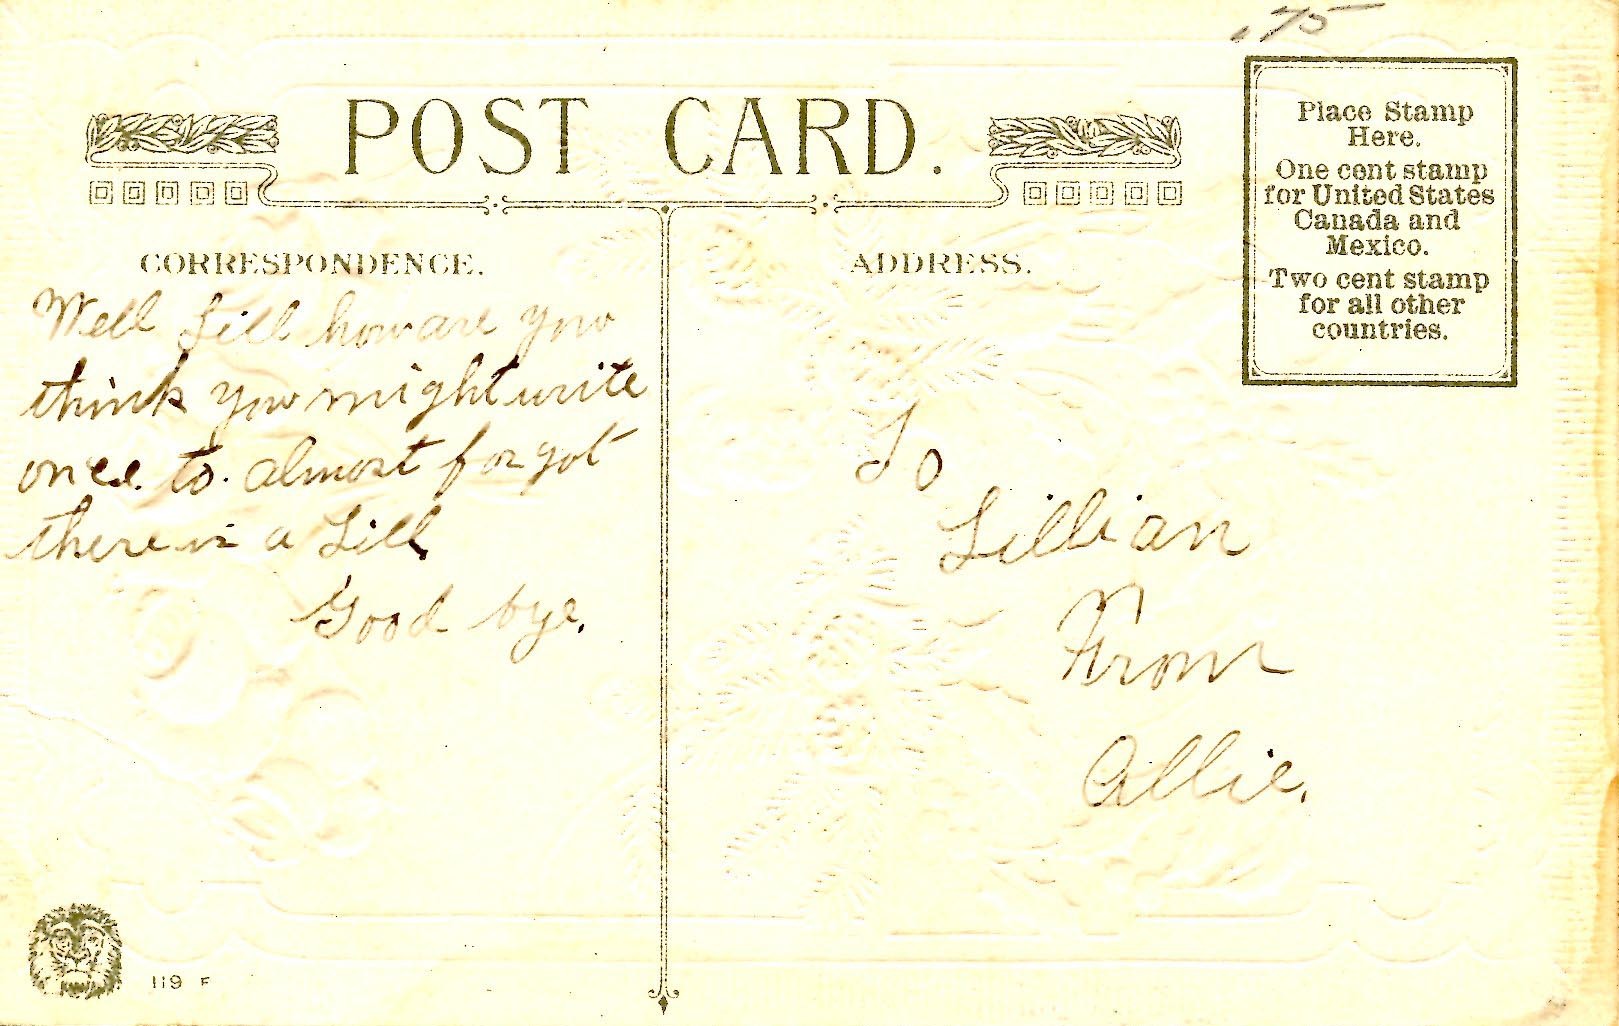 .75
POST CARD.
Place Stamp
Here.
One cent stamp
for United States
Canada and
Mexico.
Two cent stamp
for all other
countries.
CORRESPONDENCE.
Well Lill how are you
think you might write
once to. almost forgot
there is a Lill.
Good bye.
ADDRESS.
To
Lillian
From
Allie.
119 F